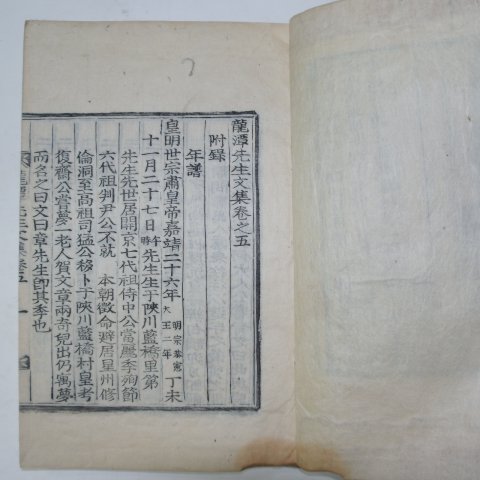 龍潭先生文集卷之五
附錄
年譜
皇明世宗肅皇帝嘉靖二十六年 明宗恭憲大王二年 丁未
十一月二十七日午時先生生于陜川藍橋里第
先生先世居開京七代祖侍中公當麗季殉節
六代祖判尹公不就 本朝徵命避居星州修
倫洞至高祖司猛公移卜于陜川藍橋村皇考
復齋公嘗夢一老人賀文章兩奇兒出仍寓夢
而名之曰文曰章先生卽其季也
龍潭先生文集卷五 一